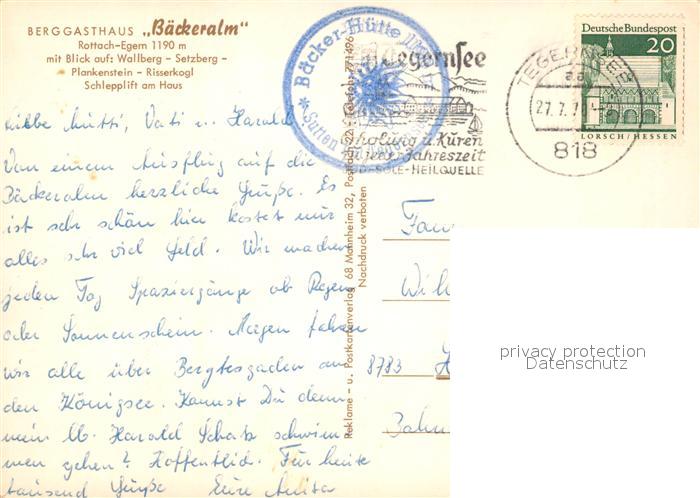 BERGGASTHAUS „Bäckeralm"
Rottach-Egern 1190 m
mit Blick auf: Wallberg – Setzberg –
Plankenstein – Risserkogl
Schlepplift am Haus
Liebe Mutti, Vati u. Harald
Von einem Ausflug auf die
Bäckeralm herzliche Grüße. Es
ist sehr schön hier kostet nur
alles sehr viel Geld. Wir machen
jeden Tag Spaziergänge ob Regen
oder Sonnenschein. Morgen fahren
wir alle über Bergtesgaden an
den Königsee. Kannst Du denn
mein lb. Harald Schatz schwim
men gehen? Hoffentlich. Für heute
tausend Grüße Eure Anita
Bäcker-Hütte
Sutten
Tegernsee
Erholung u. Kuren
zu jeder Jahreszeit
JOD-SOLE-HEILQUELLE
TEGERNSEE
aa
27.7.7
818
Deutsche Bundespost
20
LORSCH/HESSEN
Reklame- u. Postkartenverlag 68 Mannheim 32, Postfach 22, Telefon 771496
Nachdruck verboten
Fam
Wil
8783 H
Bahn
privacy protection
Datenschutz